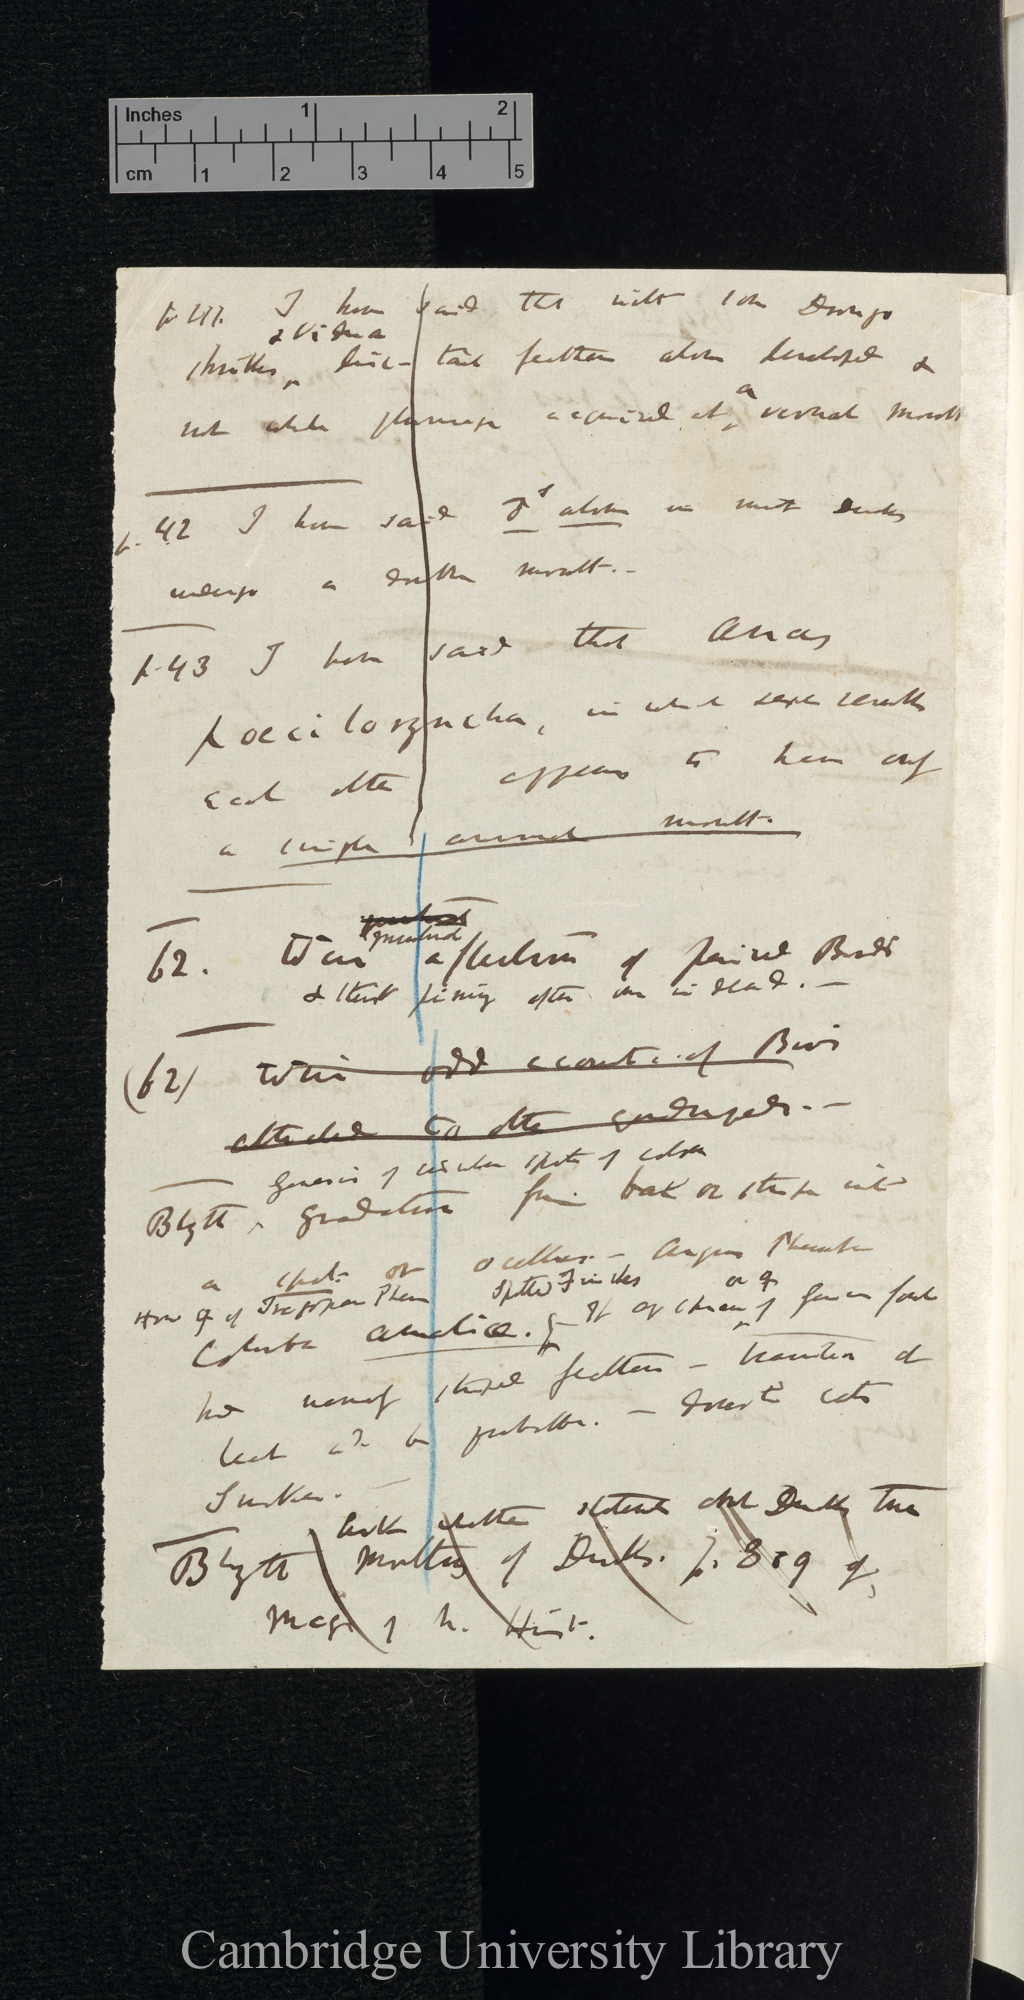 Inches 1 2
cm 1 2 3 4 5
p. 41. I have said that with some Drongo
& Vidua
shrikes, line-tail feathers alone developed &
not whole plumage acquired at a vernal moult
p. 42 I have said ♂s alone in most ducks
undergo a double moult.-
p. 43 I have said that Anas
poeciloryncha, in which sexes resemble
each other appears to have only
a single annual moult.
62. Weir
affection of paired Birds
& their pining after one is dead. —
(62) Weir odd accounts of Birds
attached to other —
Genesis of circular spots of colour
Blyth, gradation from bar or stripe into
a spot or ocellus. — Argus Pheasant
How ♀ of Tragopan Phea Spotted Finches or ♀
Columba If of
feathers — transition at
least wd be probable. — cats
look whether statement about Ducks true
Blyth Moulting of Ducks. p. 889 of
Mag of N. Hist.
Cambridge University Library